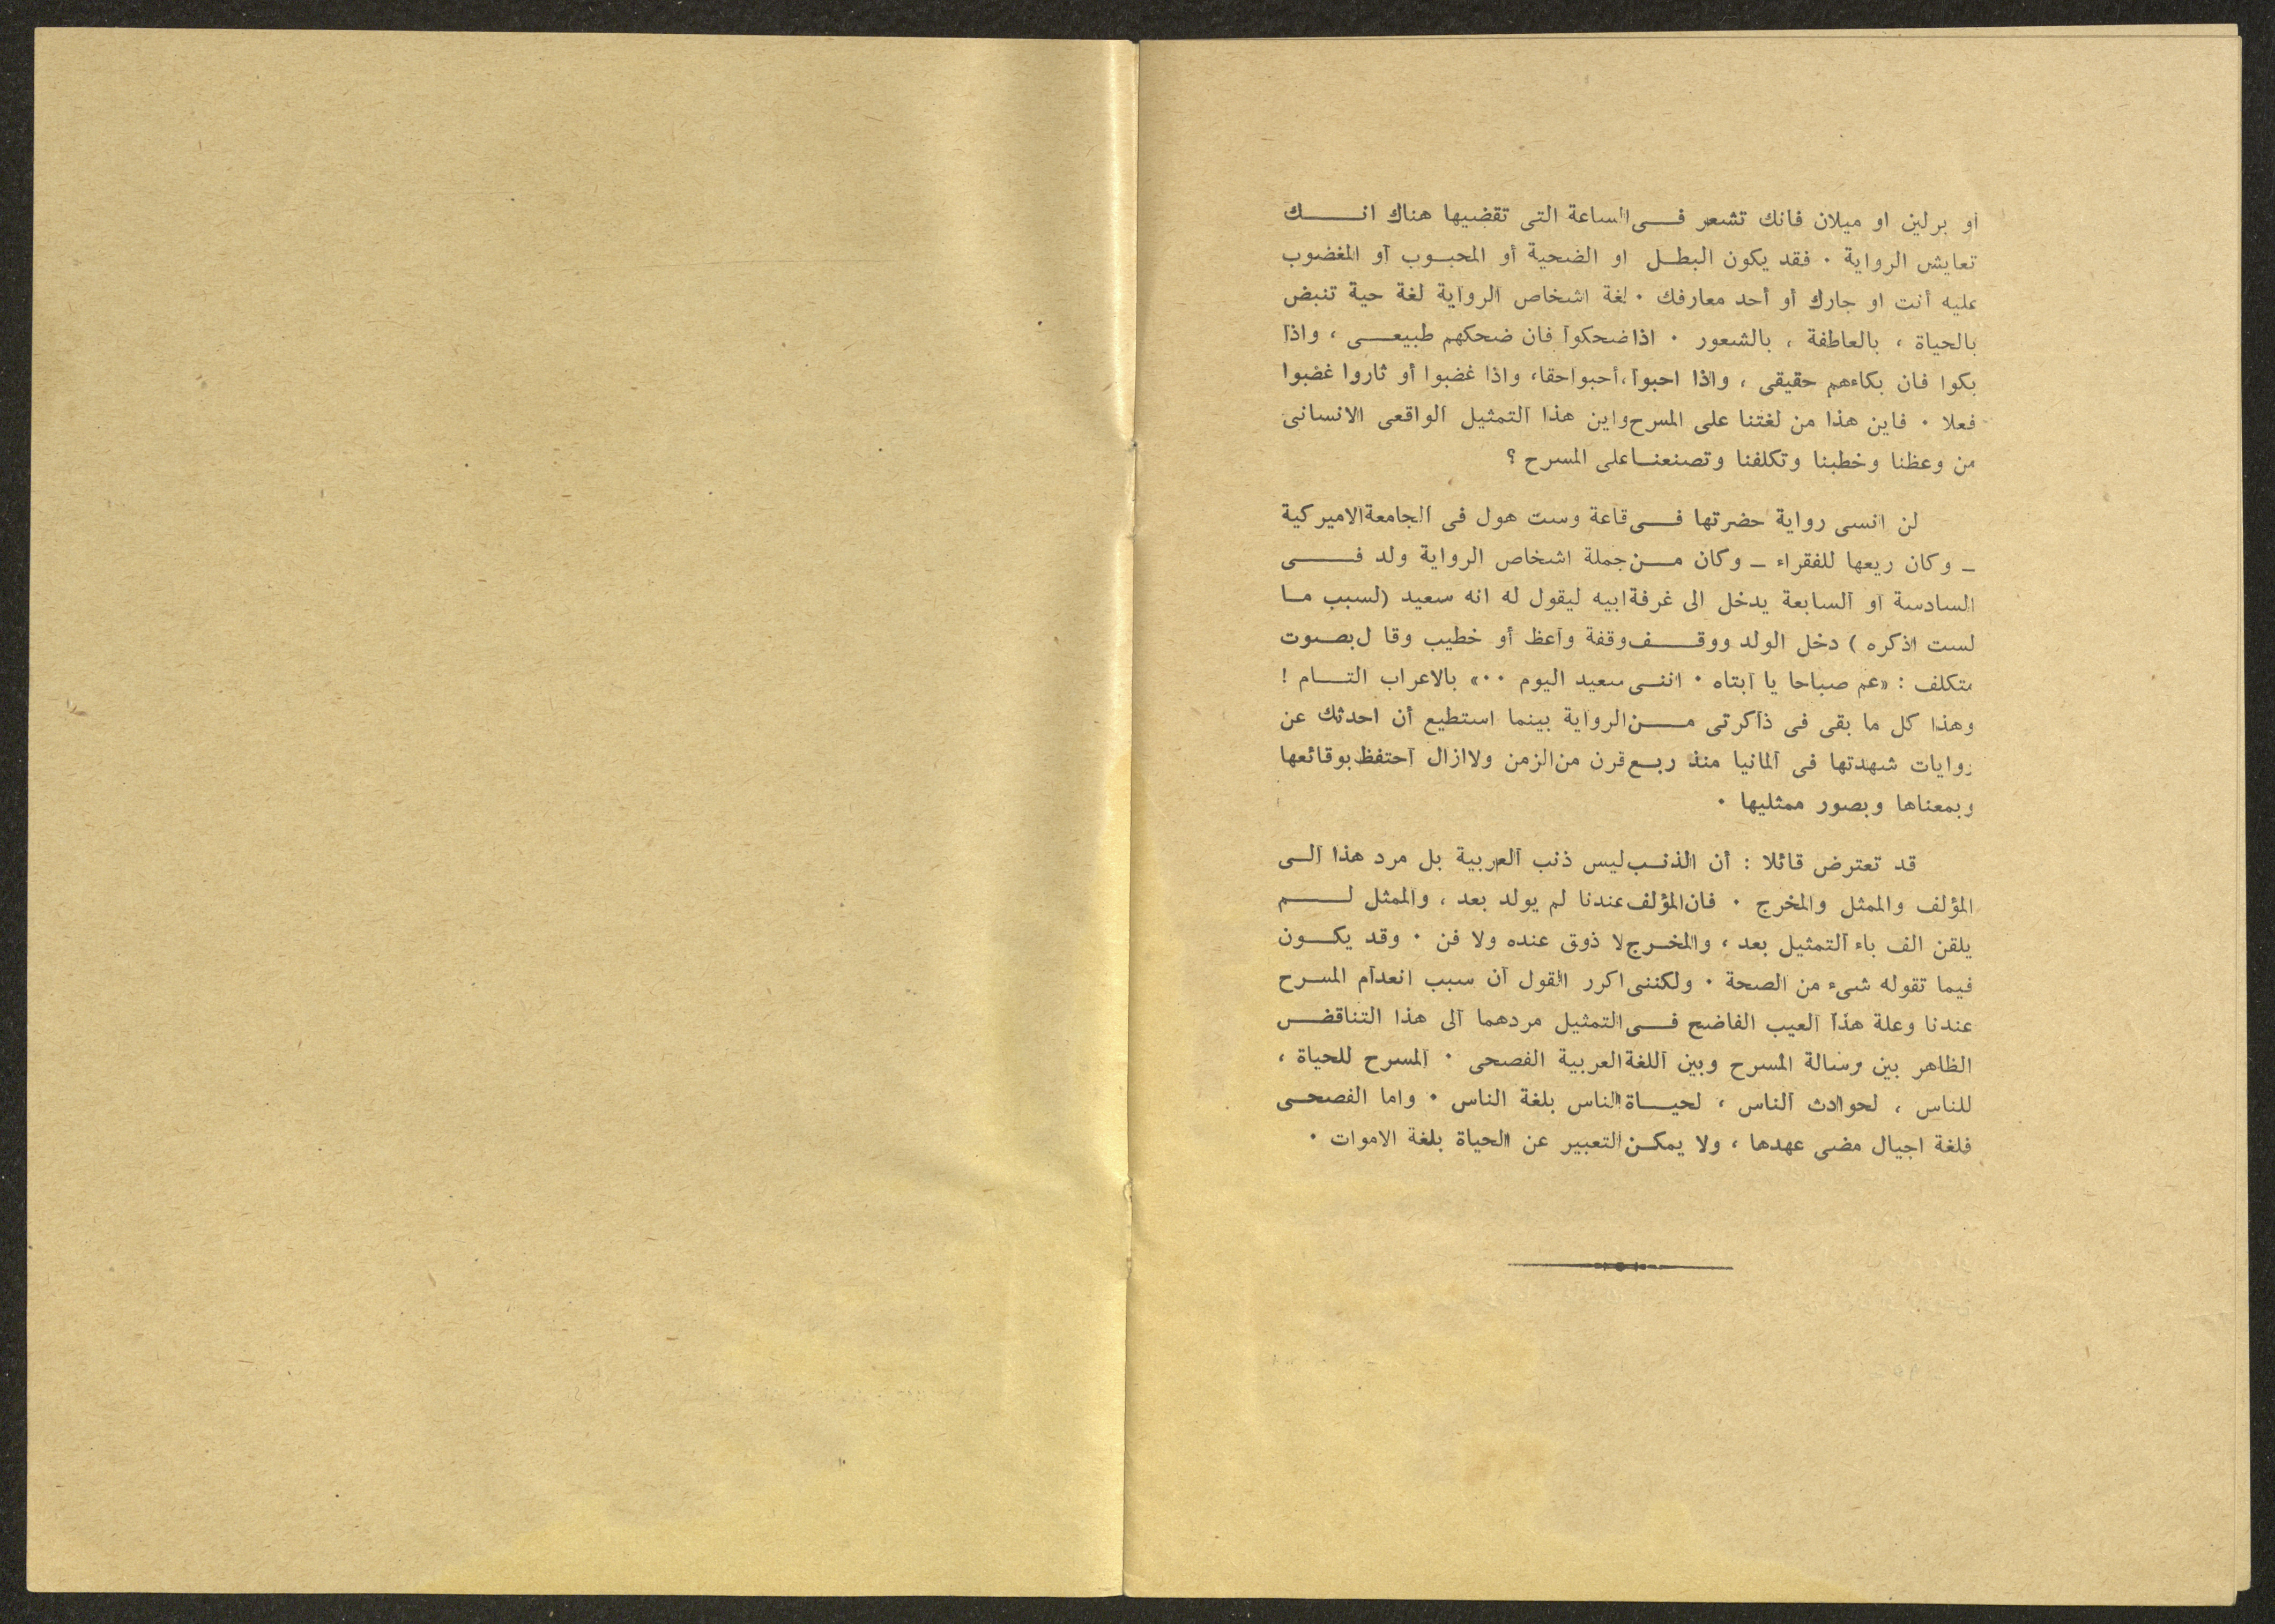 او برلين او ميلان فانك تشعر فى الساعة التى تقضيها هناك انك
تعايش الرواية . فقد يكون البطل او الضحية أو المحبوب أو المغضوب
عليه أنت او جارك أو أحد معارفك . لغة اشخاص الرواية لغة حية تنبض
بالحياة ، بالعاطفة ، بالشعور . اذا ضحكوا فان ضحكهم طبيعى ، واذا
بكوا فان بكاءهم حقيقى ، واذا احبوا ، أحبوا حقا ، واذا غضبوا أو ثاروا غضبوا
فعلا . فاين هذا من لغتنا على المسرح واين هذا التمثيل الواقعى الانسانى
من وعظنا وخطبنا وتكلفنا وتصنعنا على المسرح ؟
لن انسى رواية حضرتها فى قاعة وست هول فى الجامعة الاميركية
ـ وكان ريعها للفقراء ـ وكان من جملة اشخاص الرواية ولد فى
السادسة أو السابعة يدخل الى غرفة ابيه ليقول له انه سعيد (لسبب ما
لست اذكره ) دخل الولد ووقف وقفة واعظ أو خطيب وقا ل بصوت
متكلف : «عم صباحا يا أبتاه . اننى سعيد اليوم ..» بالاعراب التام !
وهذا كل ما بقى فى ذاكرتى من الرواية بينما استطيع أن احدثك عن
روايات شهدتها فى المانيا منذ ربع قرن من الزمن ولا ازال احتفظ بوقائعها
وبمعناها وبصور ممثليها .
قد تعترض قائلا : أن الذنب ليس ذنب العربية بل مرد هذا الى
المؤلف والممثل والمخرج . فان المؤلف عندنا لم يولد بعد ، والممثل لم
يلقن الف باء التمثيل بعد ، والمخرج لا ذوق عنده ولا فن . وقد يكون
فيما تقوله شىء من الصحة . ولكننى اكرر القول أن سبب انعدام المسرح
عندنا وعلة هذا العيب الفاضح فى التمثيل مردهما الى هذا التناقض
الظاهر بين رسالة المسرح وبين اللغة العربية الفصحى . المسرح للحياة ،
للناس ، لحوادث الناس ، لحياة الناس بلغة الناس . واما الفصحى
فلغة اجيال مضى عهدها ، ولا يمكن التعبير عن الحياة بلغة الاموات .